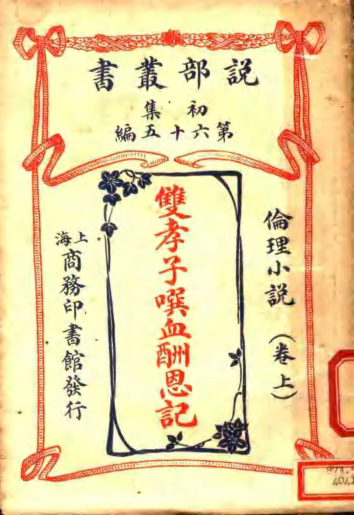 說部叢書
初集
第六十五編
倫理小說（卷上）
雙孝子噀血酬恩記
上海商務印書館發行